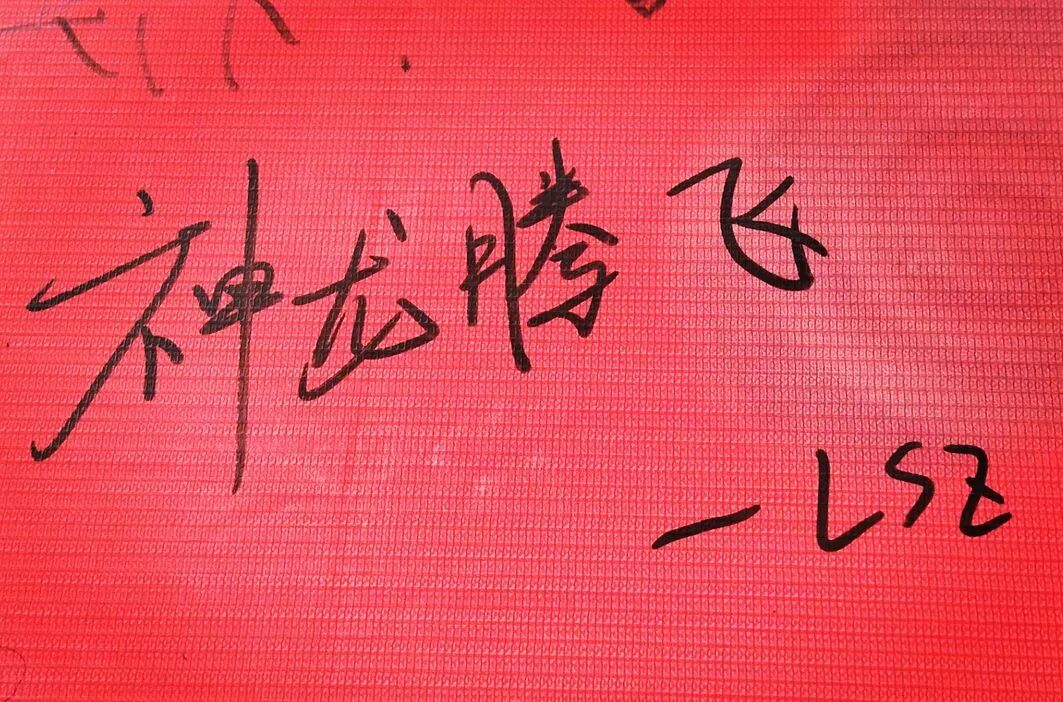 神龙腾飞
—LSZ